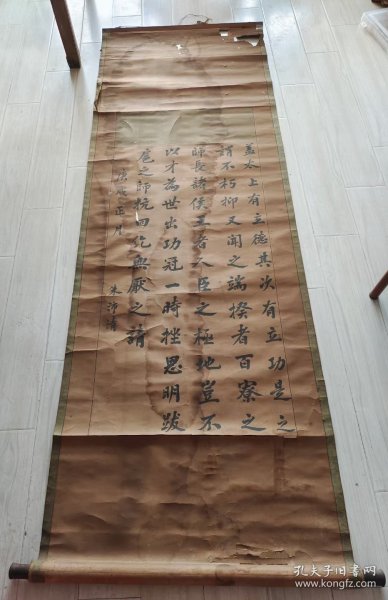 盖太上有立德其次有立功是之
谓不朽抑又闻之端揆者百寮之
師長諸侯王者人臣之極地豈不
以才為世出功冠一時挫思明跋
扈之師抗回紇無厭之請
庚 正月
朱沛清
孔夫子旧书网
www.kongfz.com